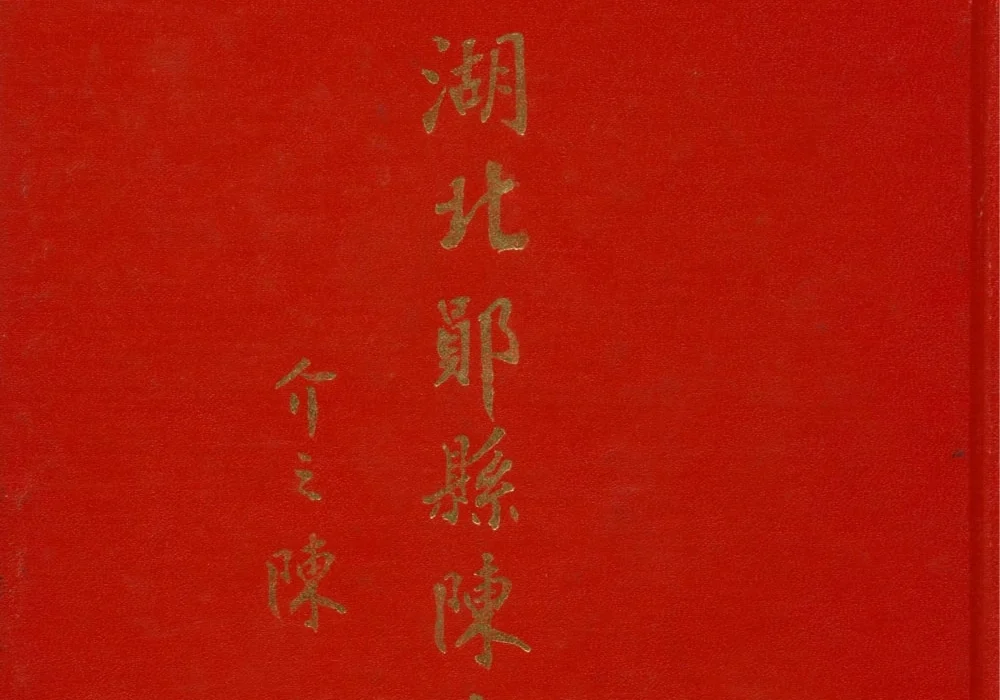 湖北鄖縣陳
介之陳